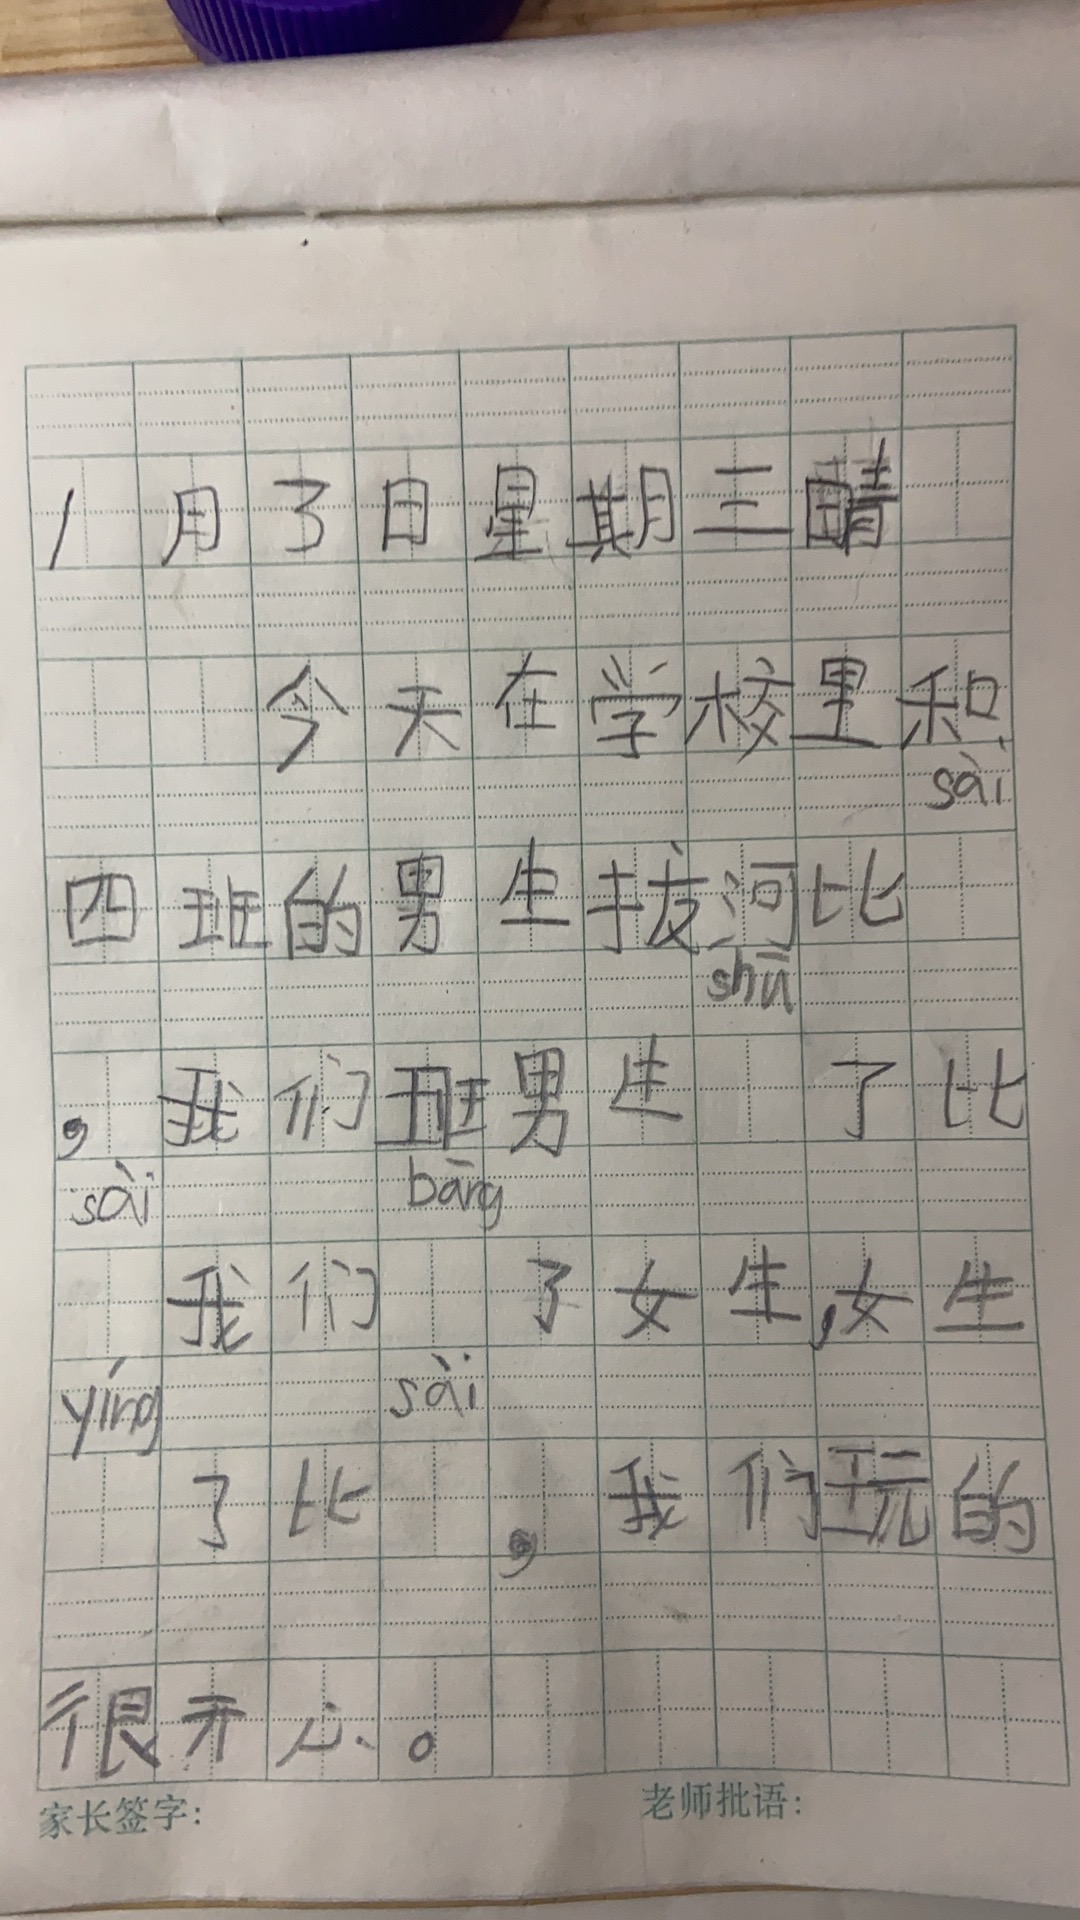 1月3日星期三晴
今天在学校里和
sài
四班的男生拔河比
shū
,我们班男生 了比
sài bāng
我们 了女生,女生
yíng sài
了比 ,我们玩的
很开心。
家长签字: 老师批语: